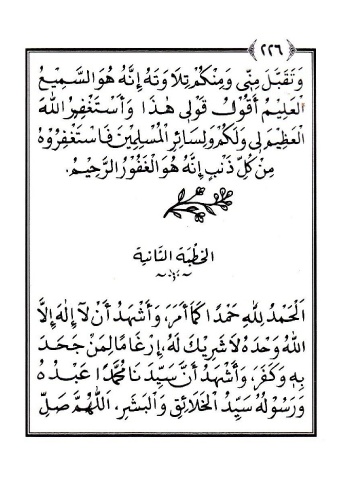 ﴿٢٢٦﴾
وَتَقَبَّلَ مِنِّي وَمِنْكُمْ تِلَاوَتَهُ إِنَّهُ هُوَ السَّمِيعُ
الْعَلِيمُ أَقُولُ قَوْلِي هٰذَا وَأَسْتَغْفِرُ اللهَ
الْعَظِيمَ لِي وَلَكُمْ وَلِسَائِرِ الْمُسْلِمِينَ فَاسْتَغْفِرُوهُ
مِنْ كُلِّ ذَنْبٍ إِنَّهُ هُوَ الْغَفُورُ الرَّحِيمُ.
الخُطْبَةُ الثَّانِيَة
اَلْحَمْدُ لِلّٰهِ حَمْدًا كَمَا أَمَرَ، وَأَشْهَدُ أَنْ لَا إِلٰهَ إِلَّا
اللهُ وَحْدَهُ لَا شَرِيكَ لَهُ، إِرْغَامًا لِمَنْ جَحَدَ
بِهِ وَكَفَرَ، وَأَشْهَدُ أَنَّ سَيِّدَنَا مُحَمَّدًا عَبْدُهُ
وَرَسُولُهُ سَيِّدُ الْخَلَائِقِ وَالْبَشَرِ، اَللّٰهُمَّ صَلِّ